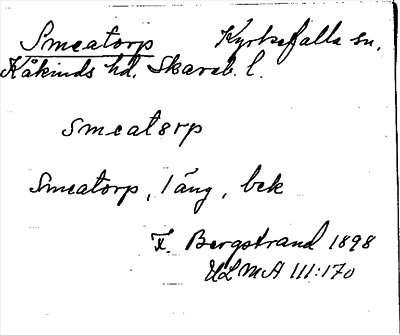 Smeatorp Kyrkefalla sn.
Kåkinds hd. Skarab. l.
smeatorp
Smeatorp, 1 äng, bek
F. Bergstrand 1898
ULMA 111:170